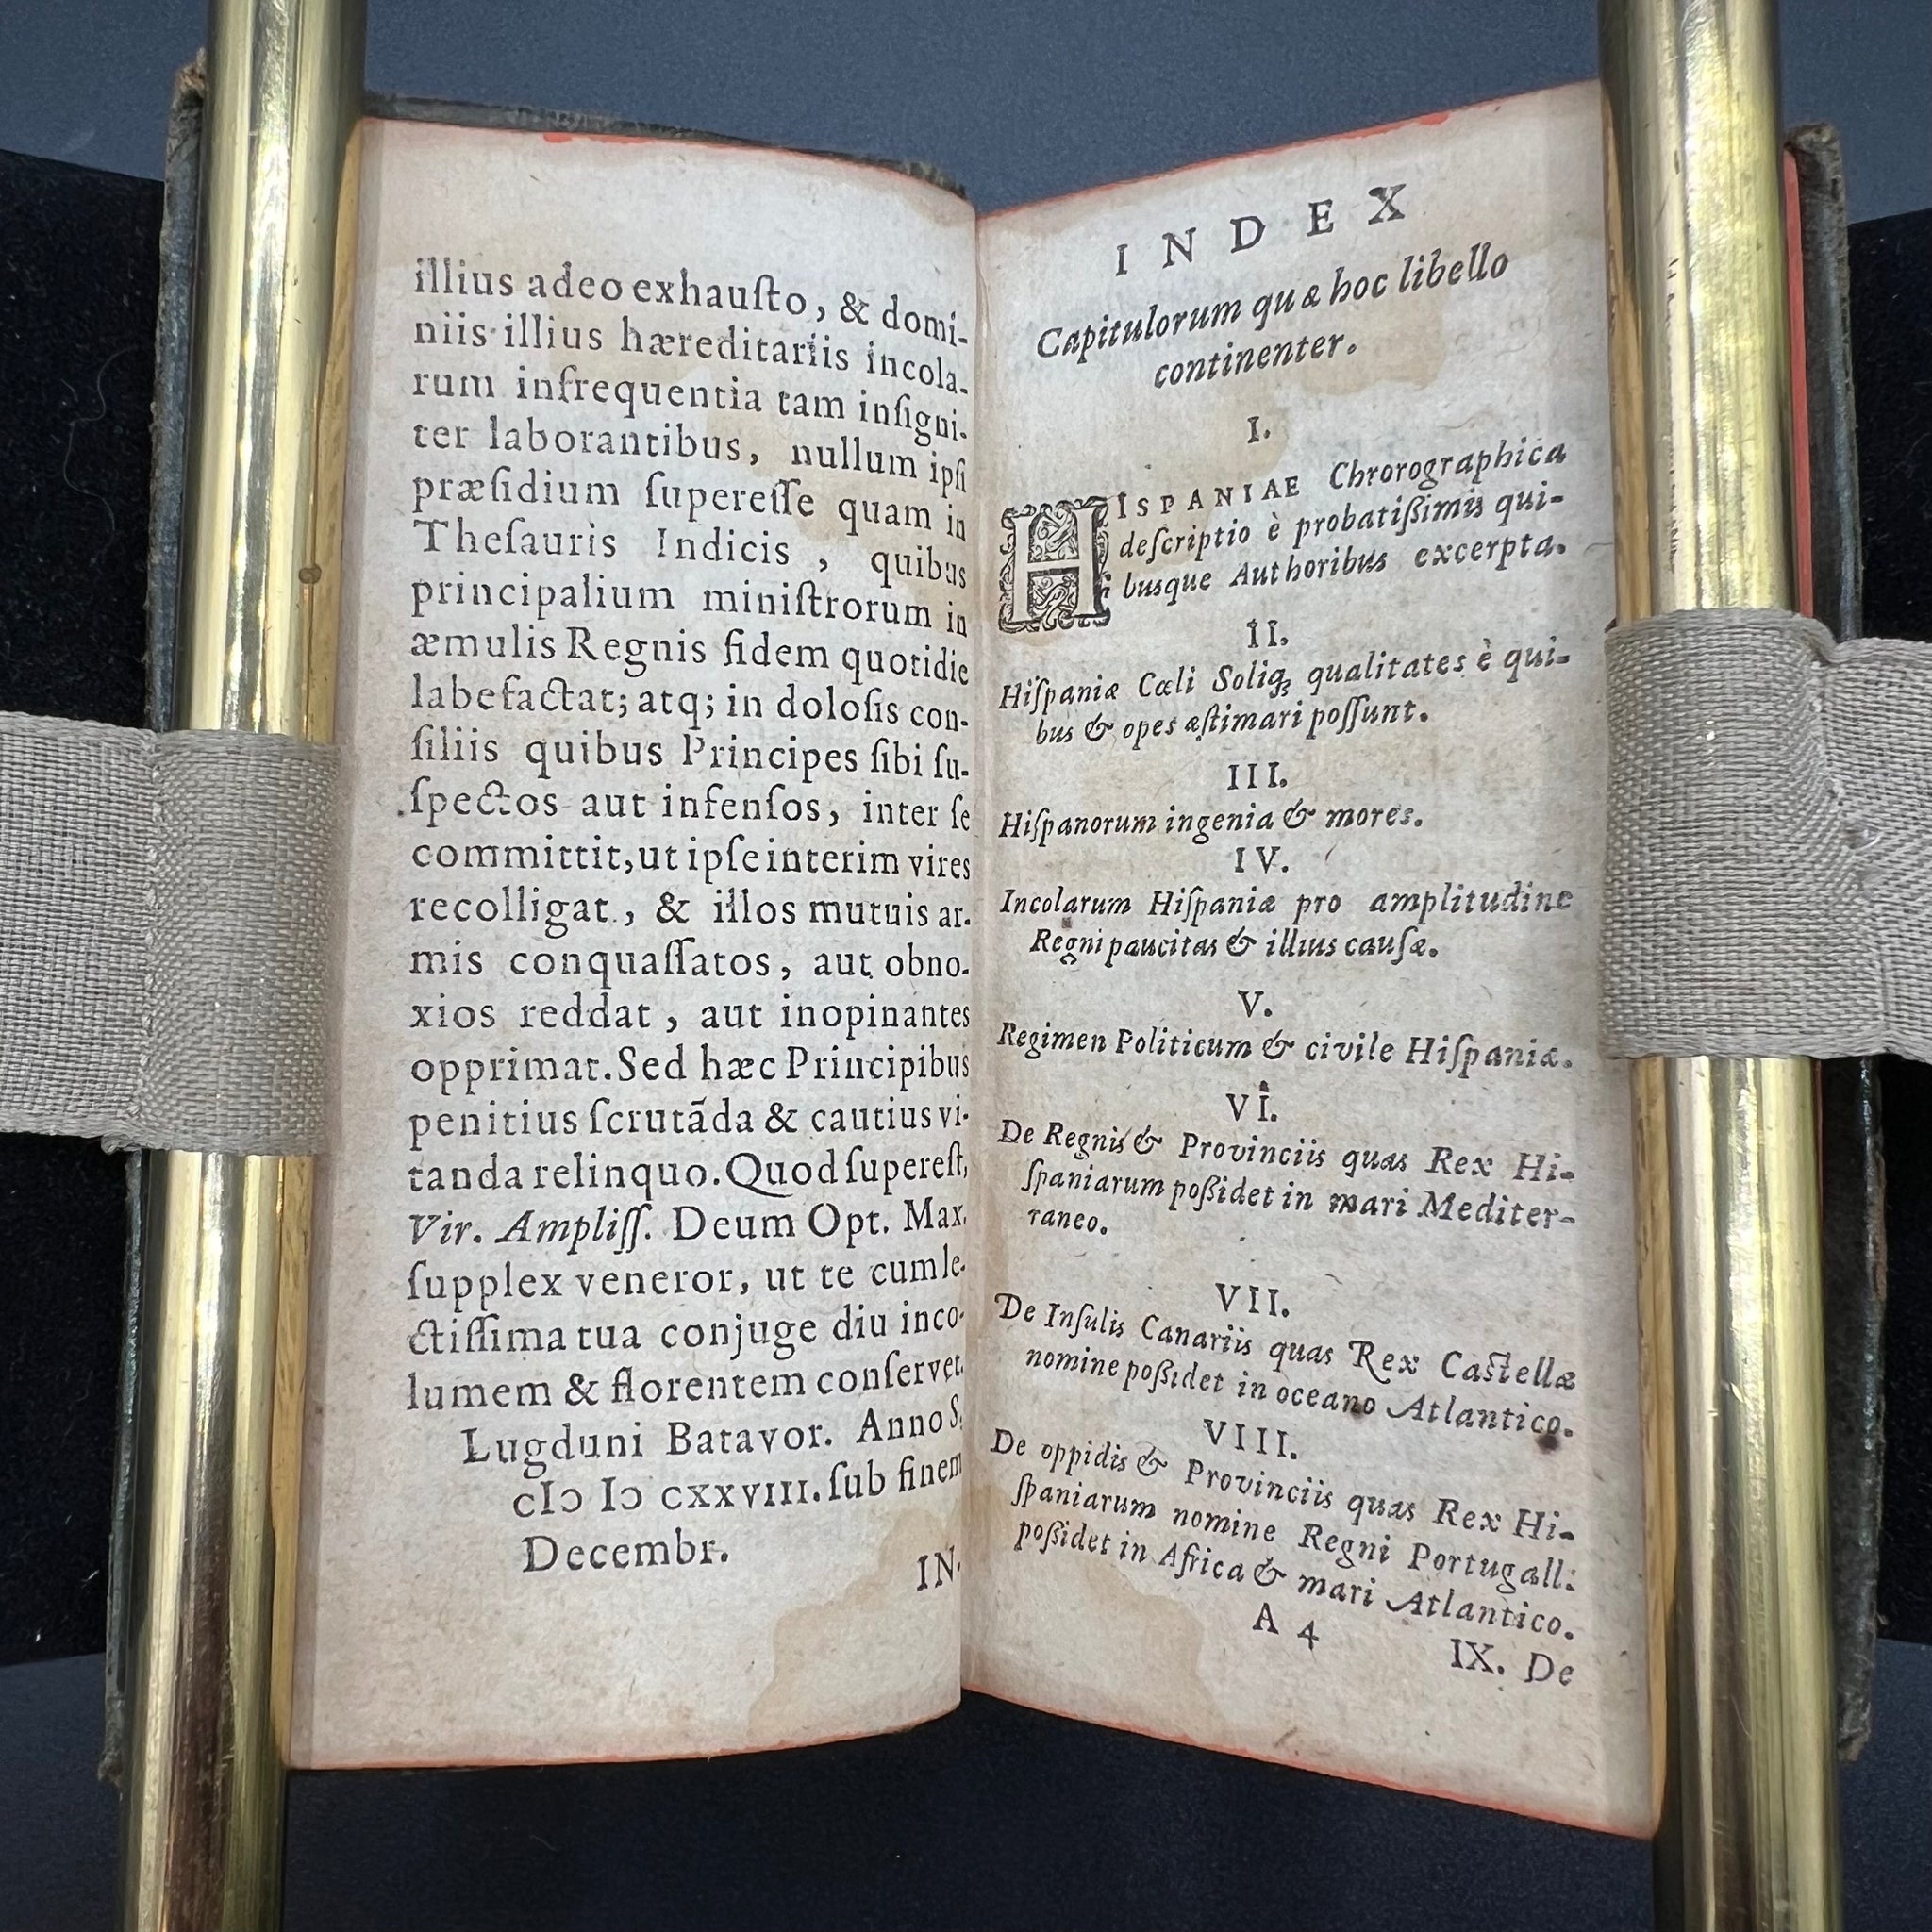 illius adeo exhauſto, & domi-
niis illius hæreditariis incola-
rum infrequentia tam inſigni-
ter laborantibus, nullum ipſi
præſidium ſupereſſe quam in
Theſauris Indicis , quibus
principalium miniſtrorum in
æmulis Regnis fidem quotidie
labefactat; atq; in doloſis con-
ſiliis quibus Principes ſibi ſu-
ſpectos aut infenſos, inter ſe
committit, ut ipſe interim vires
recolligat, & illos mutuis ar-
mis conquaſſatos, aut obno-
xios reddat , aut inopinantes
opprimat. Sed hæc Principibus
penitius ſcrutãda & cautius vi-
tanda relinquo. Quod ſupereſt,
Vir. Ampliſſ. Deum Opt. Max.
ſupplex veneror, ut te cum le-
ctiſſima tua conjuge diu inco-
lumem & florentem conſervet.
Lugduni Batavor. Anno S.
cIↄ Iↄ cxxvııı. ſub finem
Decembr.
IN-
INDEX
Capitulorum quæ hoc libello
continenter.
I.
HISPANIAE Chrorographica
deſcriptio è probatiſsimis qui-
busque Authoribus excerpta.
II.
Hiſpaniæ Cœli Soliqꝫ qualitates è qui-
bus & opes æſtimari poſſunt.
III.
Hiſpanorum ingenia & mores.
IV.
Incolarum Hiſpaniæ pro amplitudine
Regni paucitas & illius cauſæ.
V.
Regimen Politicum & civile Hiſpaniæ.
VI.
De Regnis & Provinciis quas Rex Hi-
ſpaniarum poſsidet in mari Mediter-
raneo.
VII.
De Inſulis Canariis quas Rex Caſtellæ
nomine poſsidet in oceano Atlantico.
VIII.
De oppidis & Provinciis quas Rex Hi-
ſpaniarum nomine Regni Portugall:
poſsidet in Africa & mari Atlantico.
A 4
IX. De